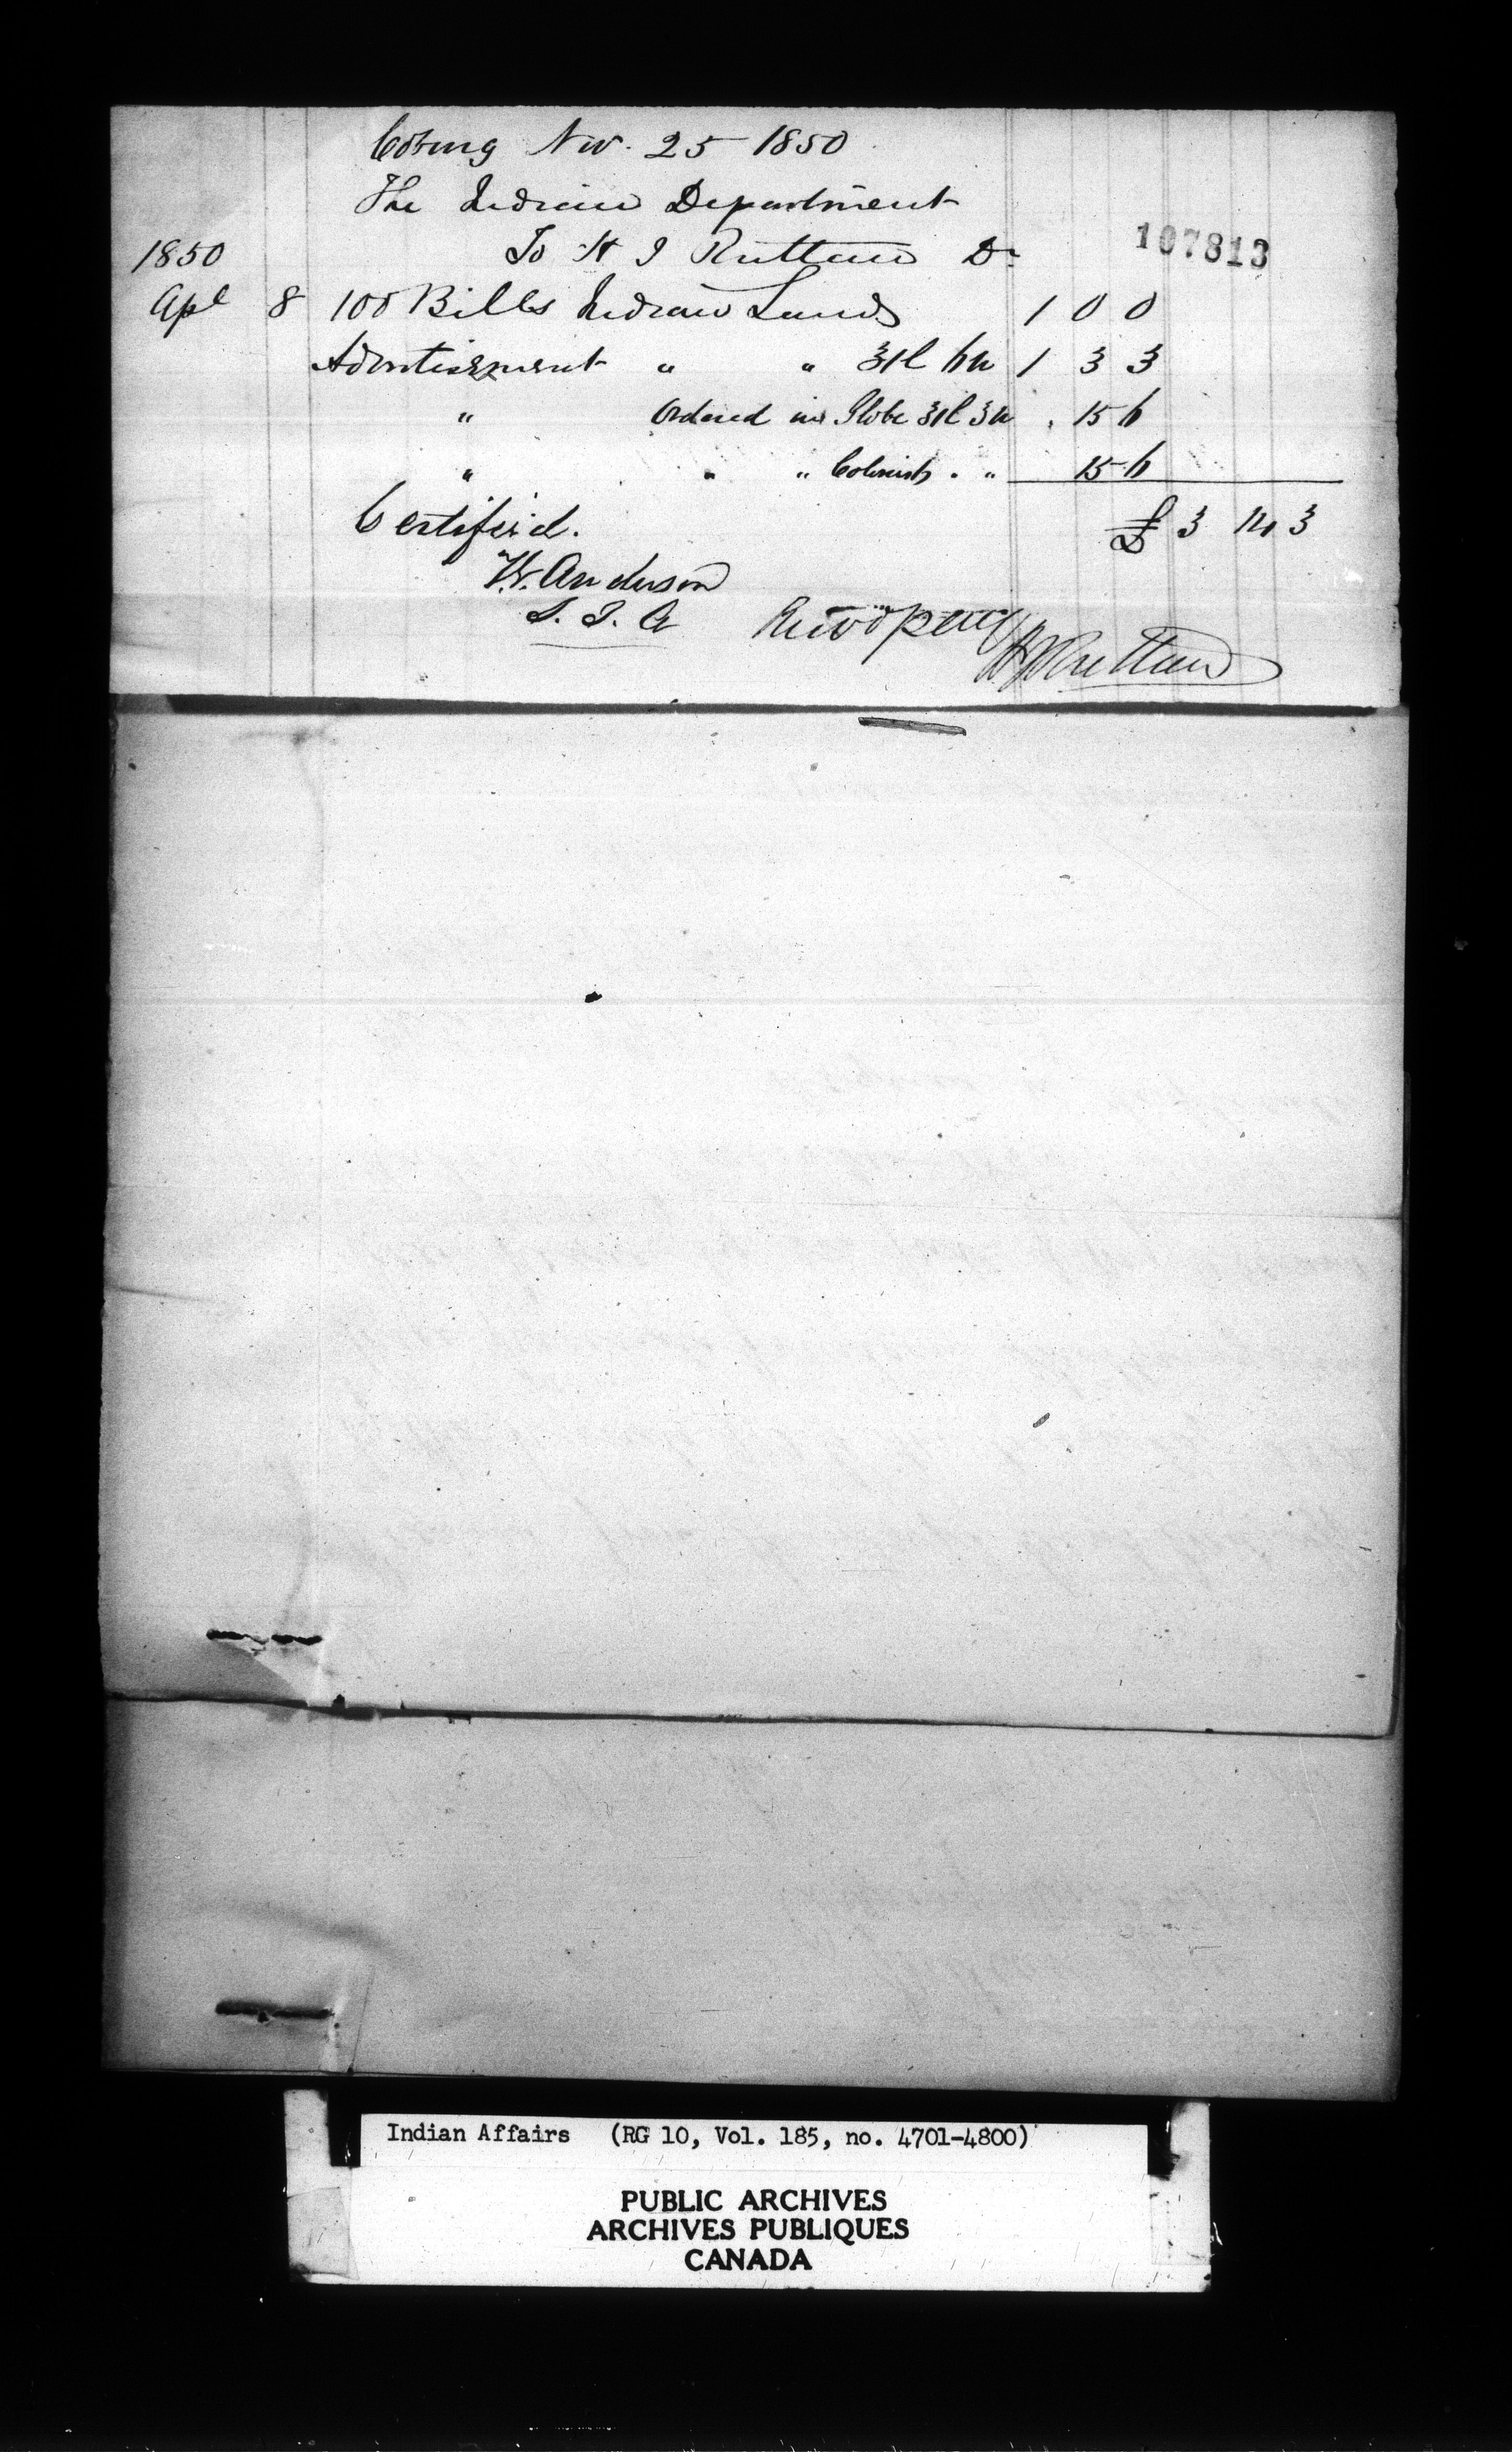 Cobourg Nov. 25 1850
The Indian Department
1850 To H J Ruttan Dr
107813
Apl 8 100 Bills Indian Lands 1 0 0
Advertisement " " 31l 6w 1 3 3
" Ordered in Globe 31l 3w . 15 6
" " " Colonist . " 15 6
£ 3 14 3
Certified.
W. Anderson
S. I. A
Recd pay
HJRuttan
Indian Affairs (RG 10, Vol. 185, no. 4701-4800)
PUBLIC ARCHIVES
ARCHIVES PUBLIQUES
CANADA